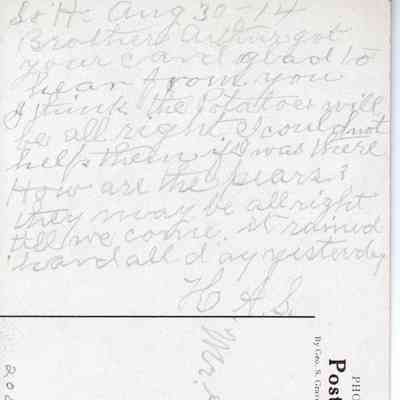 So H. Aug 30-14
Brother Arthur got
your card glad to
hear from you
I think the Potatoes will
be all right I could not
help them if I was there
How are the pears?
they may be allright
till we come. it rained
hard all day yesterday
H. A. S.
Mr.
202
PHO
Post
By Geo. S. Grav